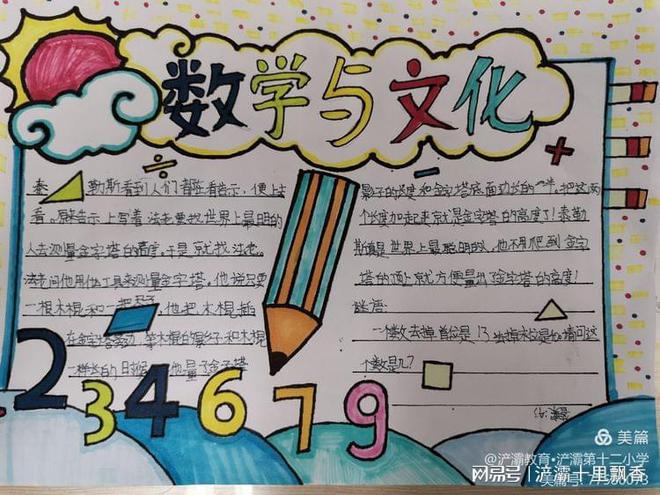 数学与文化
泰勒斯看到人们都在看告示，便上去
看。原来告示上写着法老要找世界上最聪明的
人去测量金字塔的高度。于是就找法老。
法老问他用什么工具来测量金字塔，他说只要
一根木棍和一把尺子，他把木棍插
在金字塔旁边，等木棍的影子和木棍
一样长的时候，他量了金字塔
影子的长度和金字塔底面边长的一半。把这两
个长度加起来就是金字塔的高度了！泰勒
斯真是世界上最聪明的人，他不用爬到金字
塔的顶上就方便量出了金字塔的高度！
谜语：
一个数去掉首位是13，去掉末位是40请问这
个数是几？
2 3 4 6 7 9
美篇
@浐灞教育·浐灞第十二小学
搜狐号@浐灞十里飘香